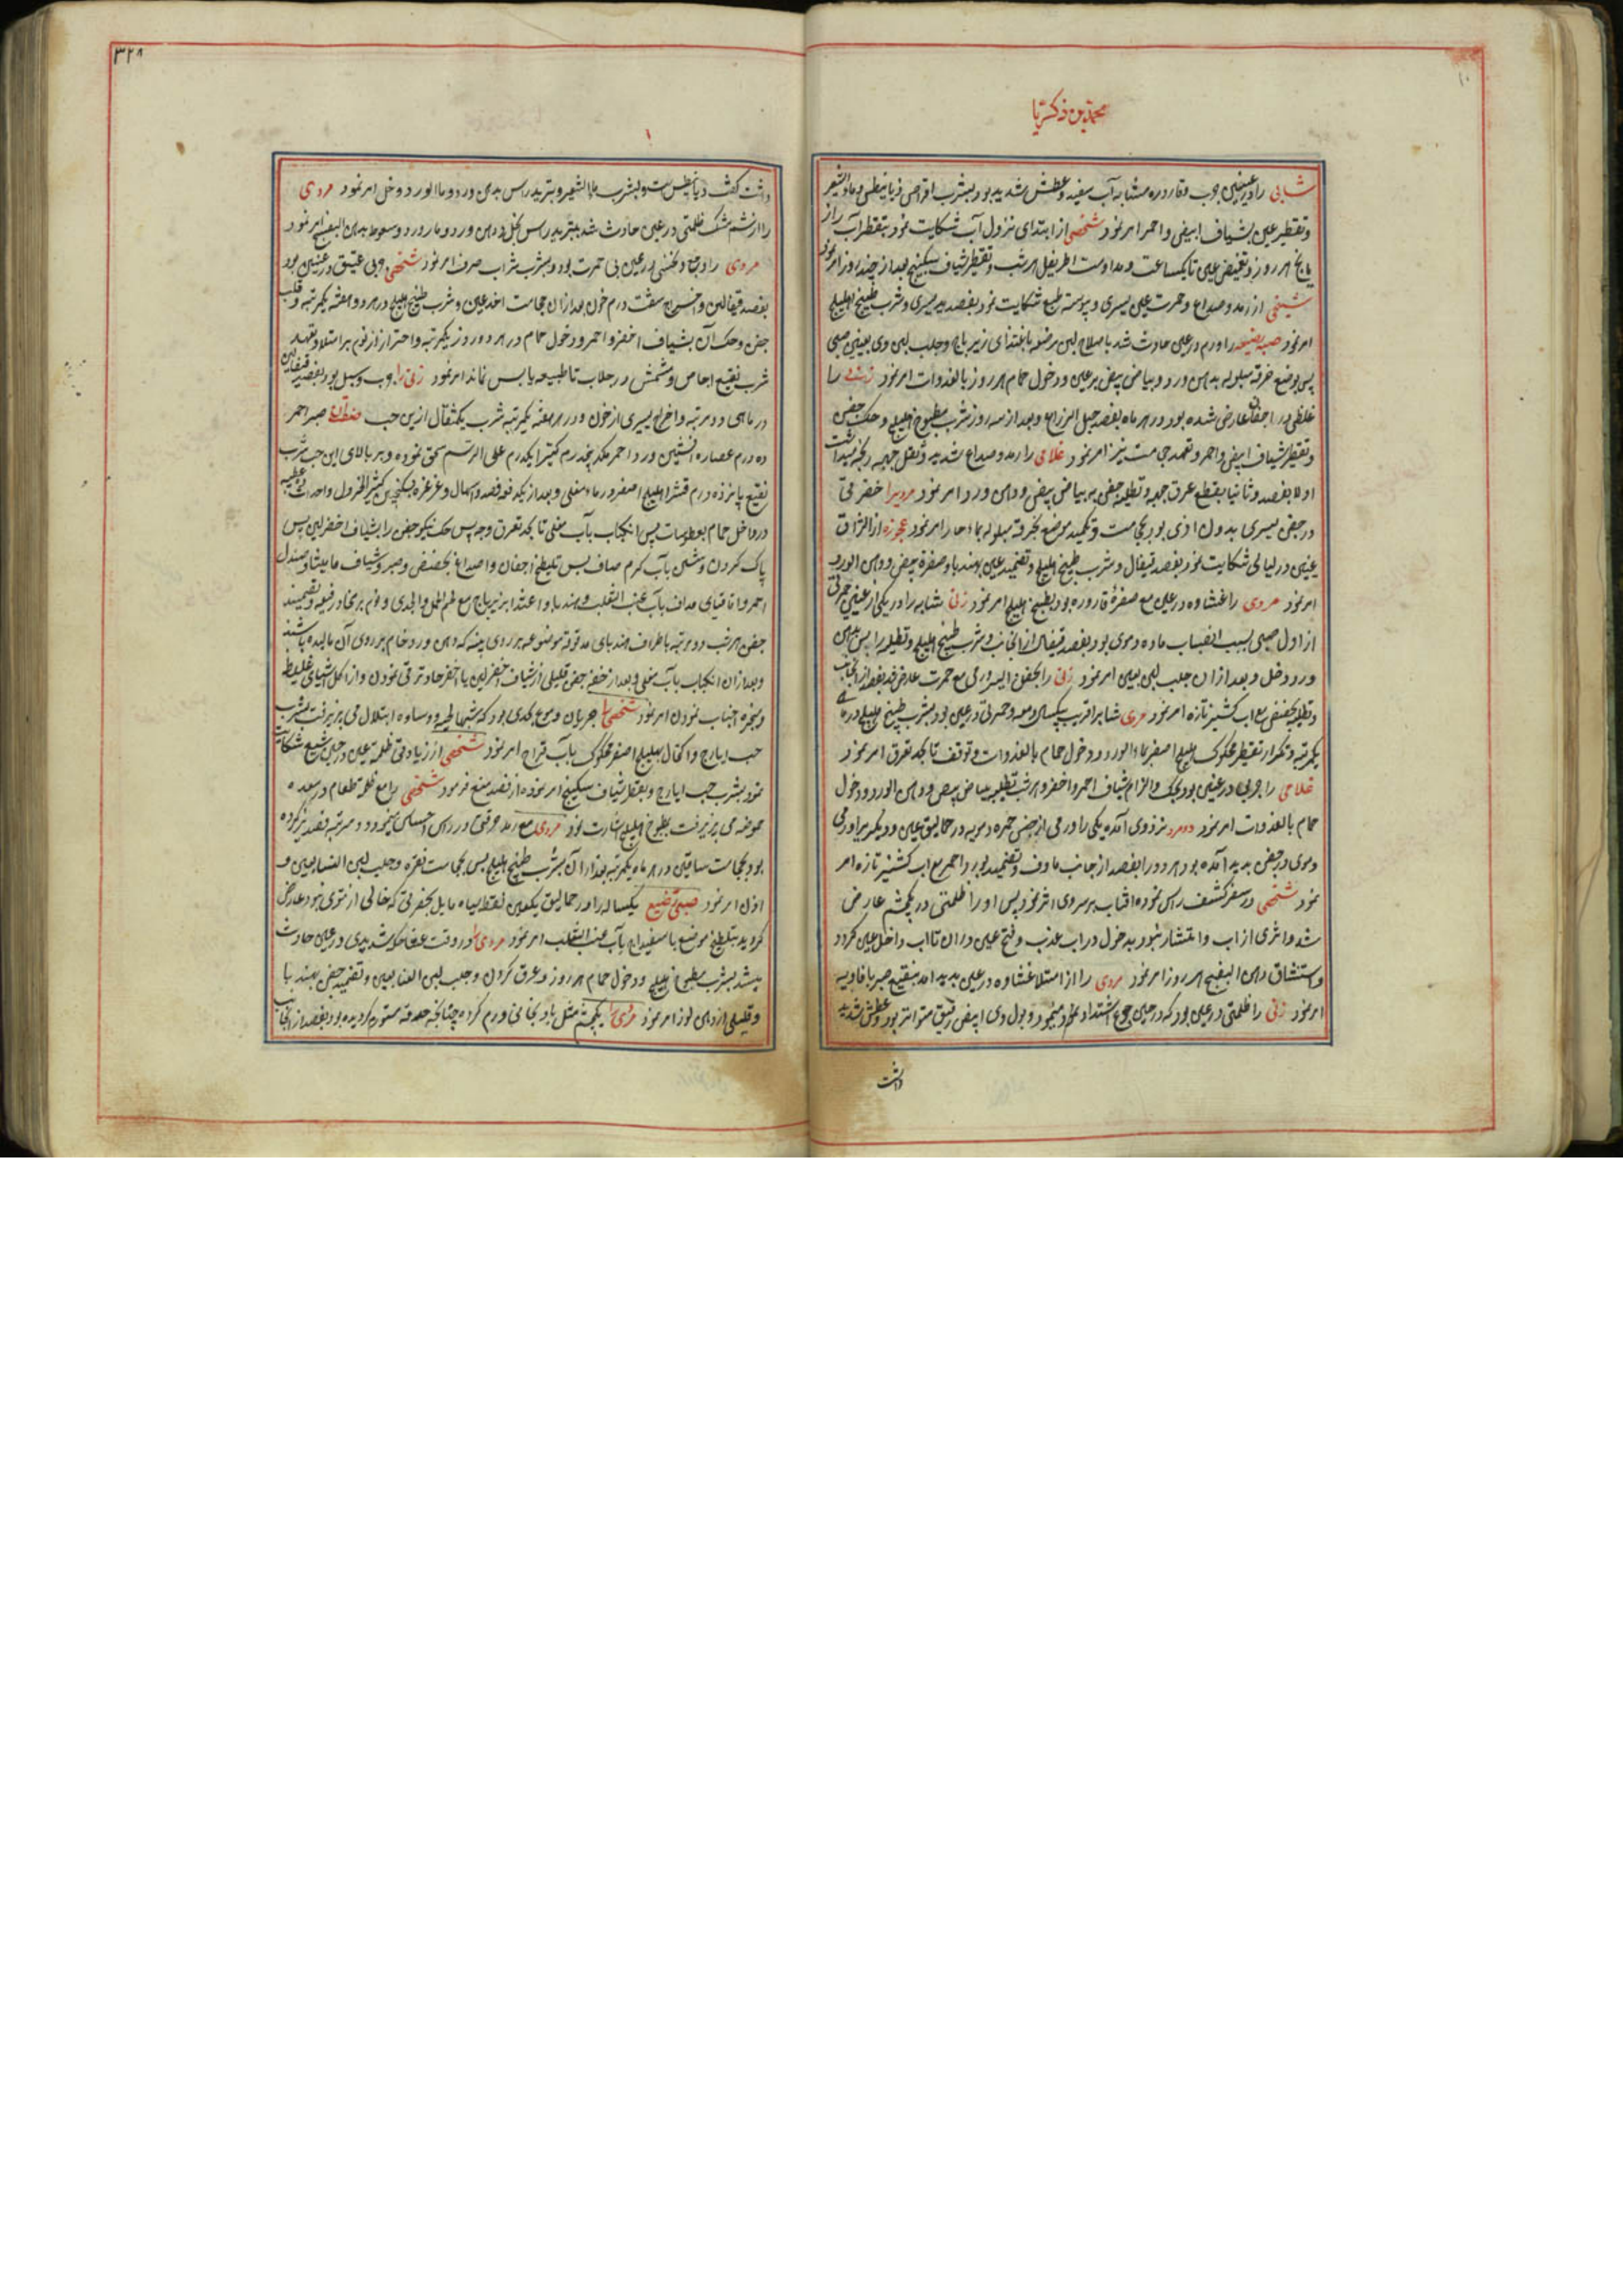 ٣٢٨
محمد بن زکریا
شابی را در عینین جرب و قاروره مشابه آب سفید و عطش شدید بود بشرب اقراص دیانیطس و ماء الشعیر
و تقطیر عین بشیاف ابیض و احمر امر نمود شخصی از ابتدای نزول آب شکایت نمود بتقطیر آب رازیانج
هر روز و تغمیض عین تا یکساعت و مداومت اطریفل هر شب و تقطیر شیاف سکبینج بعد از چند روز امر نمود
شیخی از رمد و صداع و حمرت عین یسری و یبوست طبع شکایت نمود بفصد ید یسری و شرب طبیخ هلیلج
امر نمود صبیه رضیعه را ورم در عین حادث شد باصلاح لبن مرضعه باغتذای زیرباج و حلب لبن وی بعین صبی
پس بوضع خرقه مبلوله بدهن ورد و بیاض بیض بر عین و دخول حمام هر روز بالغدوات امر نمود را
غلظی در اجفان عارض شده بود در هر ماه بفصد حبل الذراع و بعد از سه روز شرب مطبوخ هلیلج و حک جفن
و تقطیر شیاف ابیض و احمر و تعهد حجامت نیز امر نمود غلامی را رمد و صداع شدید و ثقل جبهه
اولا بفصد و ثانیا بقطع عرق جبهه و تطلیه جفن به بیاض بیض و دهن ورد امر نمود
در جفن یسری بدون اذی بود بحجامت و تکمید موضع بخرقه مبلوله بماء حار امر نمود عجوزه از الزاق
عینین در لیالی شکایت نمود بفصد قیفال و شرب طبیخ هلیلج و تضمید عین بهندبا و صفرة بیض و دهن الورد
امر نمود مردی را غشاوه در عین مع صفرة قاروره بود بطبیخ هلیلج امر نمود زنی شابه را در یکی از عینین حمرتی
از اول صبی بسبب انصباب ماده دموی بود بفصد قیفال از آنجانب و شرب طبیخ هلیلج و تطلیه راس بدهن
ورد و خل و بعد ازان حلب لبن بعین امر نمود زنی را بجفن الیسر ورمی مع حمرت عارض شد بفصد از آنجانب
و تطلیه بحضض مع آب کشنیز تازه امر نمود مردی شابرا قریب یکسال دمعه و حمرتی در عین بود بشرب طبیخ هلیلج در ماهی
یکمرتبه و تکرار تقطیر محکوک هلیلج اصفر بماء الورد و دخول حمام بالغدوات و توقف تا بحد تعرق امر نمود
غلامی را جربی در عینین بود بحک و الزام شیاف احمر و اخضر و هر شب تطلیه ببیاض بیض و دهن الورد و دخول
حمام بالغدوات امر نمود دو مرد نزد وی آمده یکی را ورمی از جنس حمره دمویه در حمالیق عین و دیگریرا ورمی
دموی در جفن پدید آمده بود هر دو را بفصد از جانب ماوف و تضمید بورد احمر مع آب کشنیز تازه امر
نمود شخصی در سفر کشف راس نموده آفتاب بر سر وی اثر نمود پس او را ظلمتی در یکچشم عارض
شد و اثری از آب و انتشار نبود بدخول در آب عذب و فتح عین در ان تا آب داخل عین گردد
و استنشاق دهن البنفسج هر روز امر نمود مردی را از امتلا غشاوه در عین پدید آمد بنقیع صبر بافاویه
امر نمود زنی را ظلمتی در عین بود که در حین جوع اشتداد هم مینمود و بول وی ابیض رقیق متواتر بود و عطش شدید
داشت
داشت گفت دیانیطس است و بشرب ماء الشعیر و تبرید راس بدهن ورد و ماء الورد و خل امر نمود مردی
را از شم مشک ظلمتی در عین حادث شد بتبرید راس بخل و دهن ورد و ماء ورد و سعوط بدهن البنفسج امر نمود
مردی را در عین بی حمرت بود بشرب شراب صرف امر نمود شخصی جربی عتیق در عینین بود
بفصد قیفالین و اخراج شصت درم خون بعد ازان حجامت اخدعین و شرب طبیخ هلیلج در هر دو هفته یکمرتبه و قلب
جفن و حک آن بشیاف اخضر و احمر و دخول حمام در هر دو روز یکمرتبه و احتراز از نوم بر امتلا و تعهد
شرب نقیع اجاص و مشمش در جلاب تا طبیعه یابس نماند امر نمود زنی را جرب و سبل بود بفصد قیفالین
در ماهی دو مرتبه و اخراج یسیری از خون و در هر هفته یکمرتبه شرب یکمثقال ازین حب صبر احمر
ده درم عصاره افسنتین ورد احمر هر یک پنجدرم کتیرا یکدرم علی الرسم سحق نموده و بر بالای این حب شرب
نقیع پانزده درم قشر هلیلج اصفر در ماء مغلی و بعد از یکدو فصد و اسهال و غرغره بسکنجبین کثیر الخردول و احداث عطسه
در داخل حمام بعطوسات پس انکباب بآب مغلی تا بحد تعرق وجه پس حک نیکو جفن را بشیاف اخضر لین پس
پاک کردن و شستن بآب گرم صاف پس تلطیخ اجفان و اصداغ بحضض و صبر و شیاف مامیثا و صندل
احمر و اقاقیای مداف بآب عنب الثعلب و هندبا و اغتذا بزیرباج مع لحم الحمل و الجدی و نوم بر مخاد رفیعه و تضمید
جفن هر شب دو مرتبه باطراف هندبای مدقوقه موضوعه بر روی پنبه که دهن ورد خام بر روی آن مالیده باشند
و بعد ازان انکباب بآب مغلی و بعد از جفن قلیلی از شیاف اخضر لین یا اخضر حاد ترقی نمودن و از اکل اشیای غلیظ
و مبخره اجتناب نمودن امر نمود شخصی را جریان دموع بحدی بود که شبها و وساده ابتلال می پذیرفت بشرب
حب ایارج و اکتحال بهلیلج اصفر محکوک بآب قراح امر نمود شخصی از زیادتی ظلمت عین در حین شبع شکایت
نمود بشرب حب ایارج و بتقطیر شیاف سکبینج امر نموده از فصد منع فرمود شخصی را مع ظلمت طعام در معده
حموضه می پذیرفت بطبوخ هلیلج اشارت نمود مردی مع رمد حرقتی در راس احساس مینمود و دو مرتبه فصد نیز کرده
بود بحجامت ساقین در هر ماه یکمرتبه بعد از آن بشرب طبیخ هلیلج پس بحجامت نقره و حلب لبن النسا بعین و
اول امر نمود صبیی رضیع یکساله را در حمالیق یکعین نقط سیاه مایل بخضرتی که خالی از نتوی نبود عارض
گردید بتلطیخ موضع باسفیداج بآب عنب الثعلب امر نمود مردی را در وقت عشا حکه شدیدی در عین حادث
میشد بشرب مطبوخ هلیلج و دخول حمام هر روز و عرق کردن و حلب لبن النسا بعین و تضمید جفن بهندبا
و قلیلی از دهن لوز امر نمود مردی را یکچشم مثل بادنجانی ورم کرده چنانکه حدقه مستور گردیده بود بفصد از آنجانب